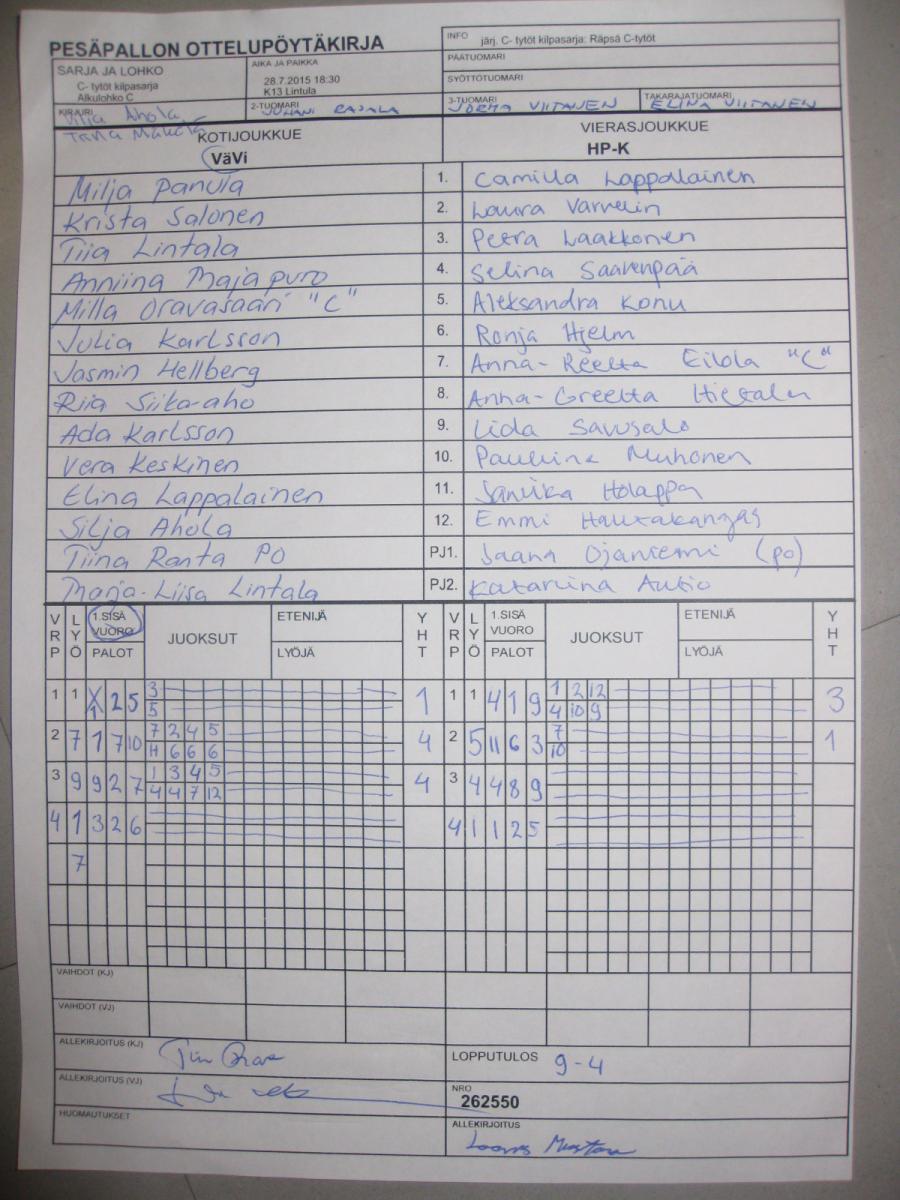 PESÄPALLON OTTELUPÖYTÄKIRJA
INFO järj. C- tytöt kilpasarja: Räpsä C-tytöt
PÄÄTUOMARI
SYÖTTÖTUOMARI
SARJA JA LOHKO
C- tytöt kilpasarja
Alkulohko C
AIKA JA PAIKKA
28.7.2015 18:30
K13 Lintula
KIRJURI Ahola
2-TUOMARI JUHANI RAJALA
3-TUOMARI JORMA VIITANEN
TAKARAJATUOMARI ELINA VIITANEN
KOTIJOUKKUE
VäVi
VIERASJOUKKUE
HP-K
Milja Panula 1. Camilla Lappalainen
Krista Salonen 2. Laura Varvelin
Tiia Lintala 3. Petra Laakkonen
Anniina Majapuro 4. Selina Saarenpää
Milla Oravasaari "C" 5. Aleksandra Konu
Julia Karlsson 6. Ronja Hjelm
Jasmin Hellberg 7. Anna-Reetta Eilola "C"
Riia Siika-aho 8. Anna-Greetta
Ada Karlsson 9. Iida Savusalo
Vera Keskinen 10. Pauliina Muhonen
Elina Lappalainen 11. Janika Holappa
Silja Ahola 12. Emmi Hautakangas
Tiina Ranta PO PJ1. Jaana Ojaniemi (po)
Marja-Liisa Lintala PJ2. Katariina Autio
VRP LYÖ 1.SISÄ VUORO PALOT JUOKSUT ETENIJÄ LYÖJÄ YHT VRP LYÖ 1.SISÄ VUORO PALOT JUOKSUT ETENIJÄ LYÖJÄ YHT
3 1 2 12
1 1 1 2 5 1 1 1 4 1 9 3
5 4 10 9
7 2 4 5 7
2 7 1 7 10 4 2 5 11 6 3 1
11 6 6 6 10
1 3 4 5
3 9 9 2 7 4 3 4 4 8 9
4 4 7 12
4 1 3 2 6 4 1 1 2 5
7
VAIHDOT (KJ)
VAIHDOT (VJ)
ALLEKIRJOITUS (KJ)
LOPPUTULOS 9-4
ALLEKIRJOITUS (VJ)
NRO
262550
HUOMAUTUKSET
ALLEKIRJOITUS